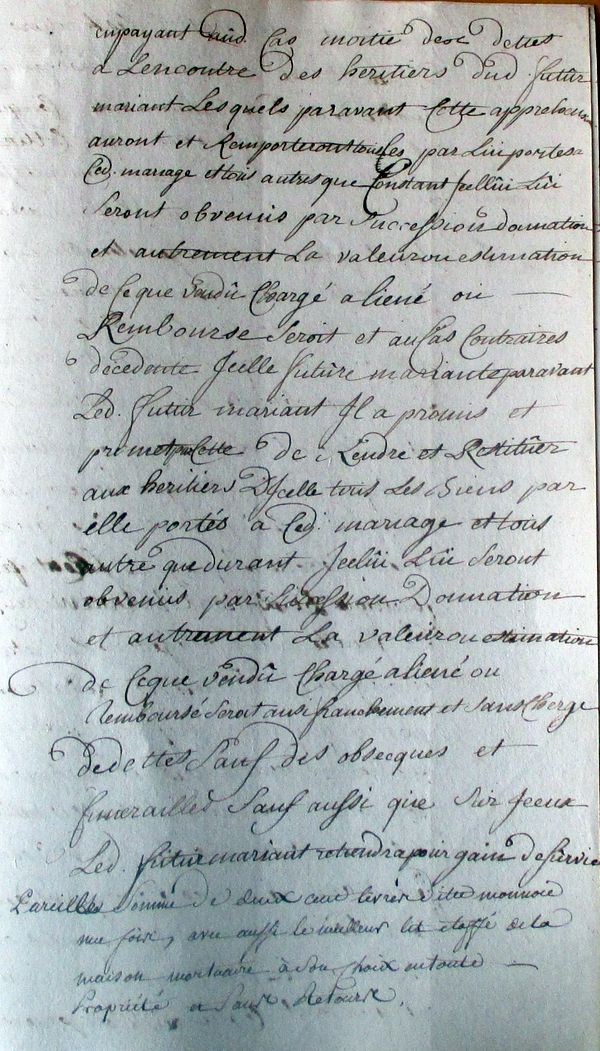 enpayant aud. Cas moitié desd dettes
a Lencontre des heritiers dud. futur
mariant Lesquels paravant Cette
auront et Remporteront tous les par Lui portes a
Ced. mariage et tous autres que Constant Jcelluy Lui
Seront obvenus par Succession donnation
et autrement La valeur ou estimation
de Ce que vendû Chargé aliené ou
Rembourse Seroit et au Cas Contraires
décedente Jcelle future mariante paravant
Led. futur mariant Jl a promis et
promet par Cette de Rendre et Restituer
aux heritiers DJcelle tous Les Biens par
elle portés a Ced. mariage et tous
autre que durant Jceluî Lui Seront
obvenus par Succession Donnation
et autrement La valeur ou estimation
de Ceque vendû Chargé aliené ou
Remboursé Seroit ausi franchement et Sans Cherge
dedettes Sauf des obsecques et
funerailles Sauf aussi que Sur Jceux
Led. futur mariant retiendra pour gain de Survie
Pareilles Somme de deux cent livres ditte monnoie
une fois, avec aussi le meilleur lit étoffé de la
maison mortuaire à Son Choix en toute
Propriété et Sans Retour.